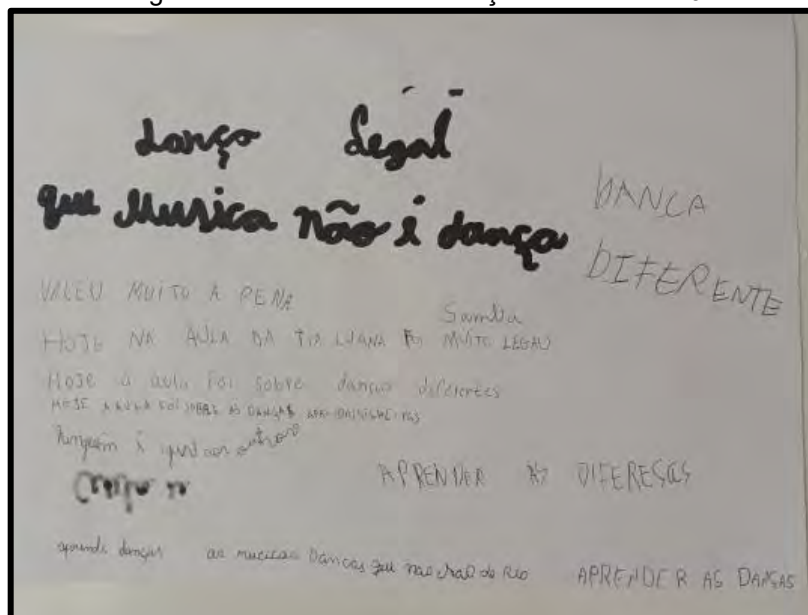 danço legal
que Musica não é dança
DANCA
DIFERENTE
VALEU MUITO A PENA
Samba
HOJE NA AULA DA TIA LUANA FOI MUITO LEGAU
HOJE a aula foi sobre danças diferentes
HOJE A AULA FOI SOBRE AS DANÇAS
Ninguém é igual aos outros
APRENDER AS DIFERESAS
aprendi danças as musicas Dancas que nao erao do Rio
APRENDER AS DANSAS